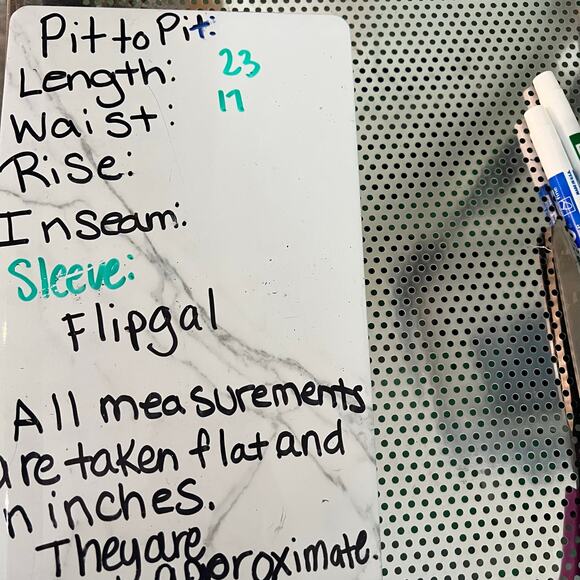 Pit to Pit:
Length: 23
Waist: 17
Rise:
Inseam:
Sleeve:
Flipgal
All measurements
are taken flat and
n inches.
They are
approximate.